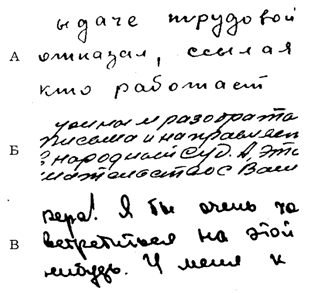 ыдаче трудовой
А отказал, ссылая
кто работает
ужины м разобрата
Б письма и направляет
народный суд. А, это
мательства с Ваш
вера! Я бы очень хо
В встретиться на этой
нибудь. У меня к